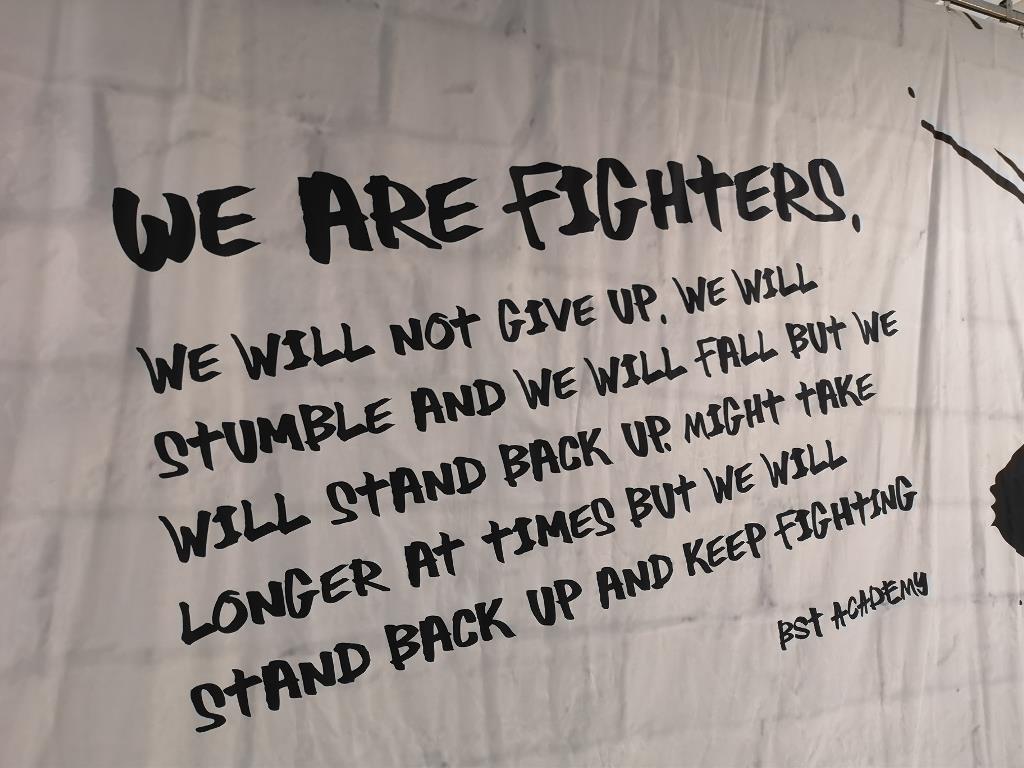 WE ARE FIGHTERS.
WE WILL NOT GIVE UP. WE WILL
STUMBLE AND WE WILL FALL BUT WE
WILL STAND BACK UP. MIGHT TAKE
LONGER AT TIMES BUT WE WILL
STAND BACK UP AND KEEP FIGHTING
BST ACADEMY